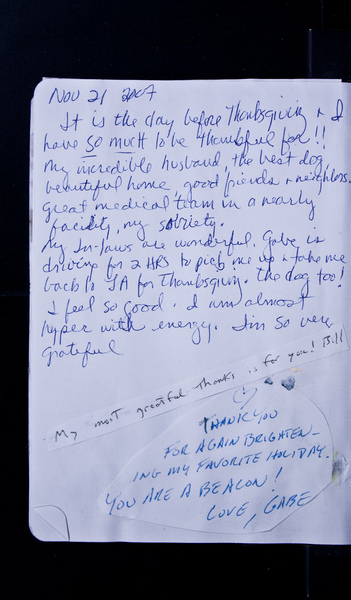 Nov 21 2007
It is the day before Thanksgiving & I
have so much to be thankful for!!
My incredible husband, the best dog,
beautiful home, good friends & neighbors.
Great medical team in a nearby
facility, my sobriety.
My In-laws are wonderful. Gabe is
driving for 2 HRS to pick me up & take me
back to for Thanksgiving. The dog too!
I feel so good. I am almost
hyper with energy. I'm so very
grateful
My most greatful thanks is for you! Bill
THANK YOU
FOR AGAIN BRIGHTEN-
ING MY FAVORITE HOLIDAY.
YOU ARE A BEACON!
LOVE, GABE